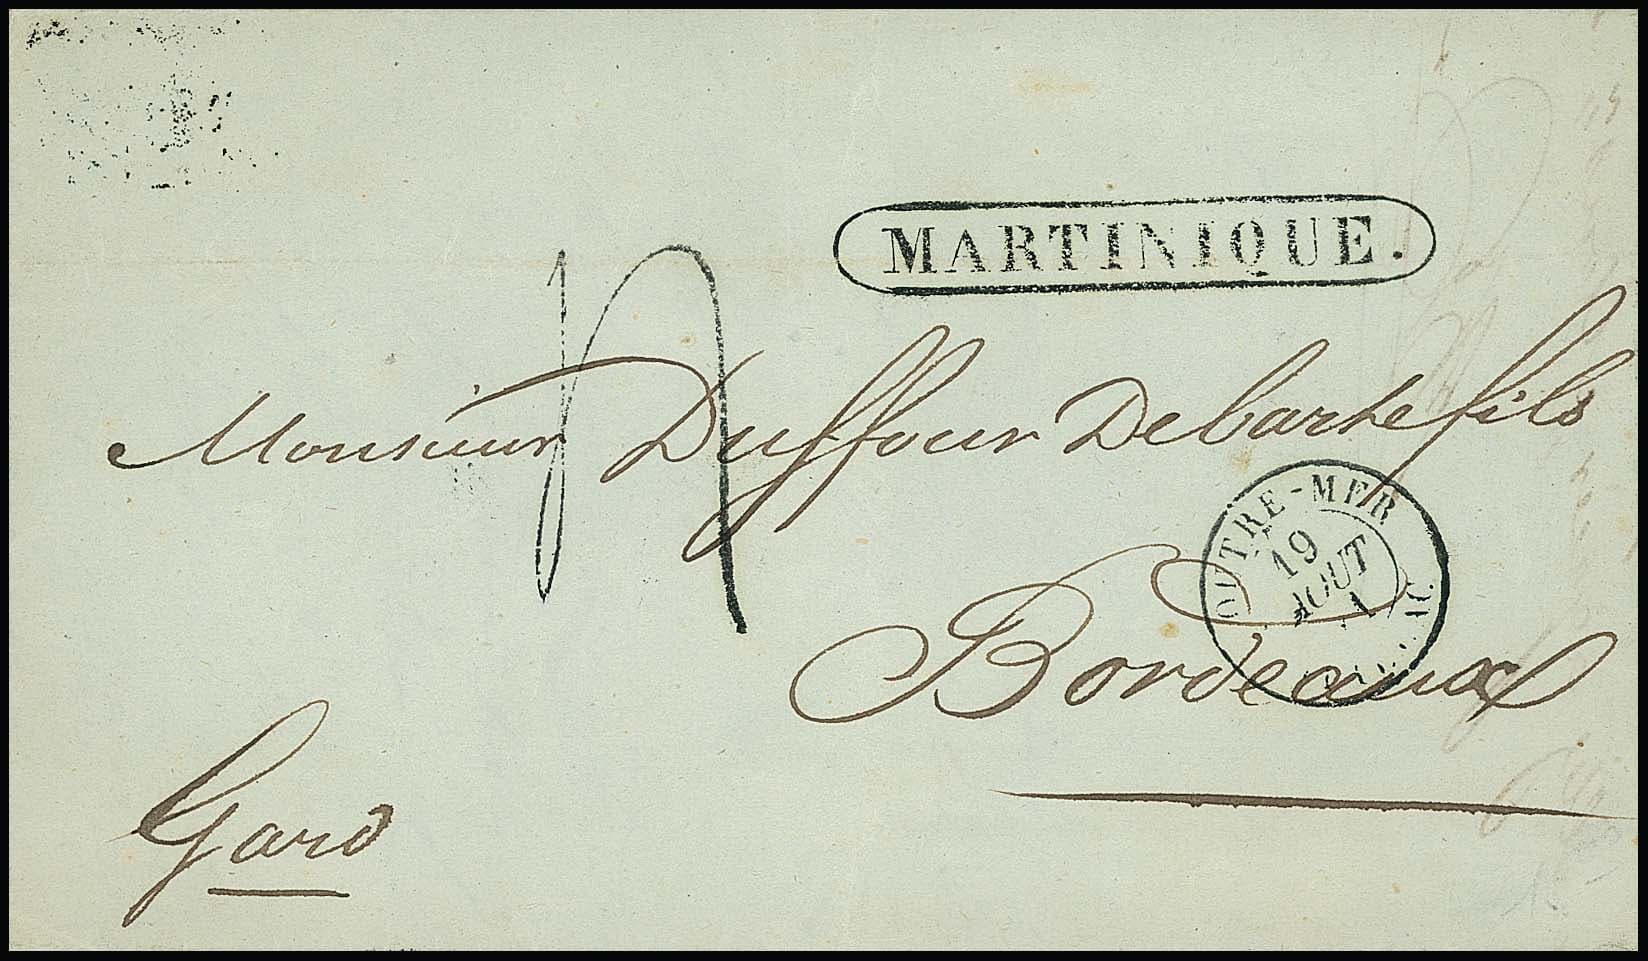 MARTINIQUE.
Monsieur Duffour Debarte fils
OUTRE-MER
19
AOUT
Bordeaux
Gard